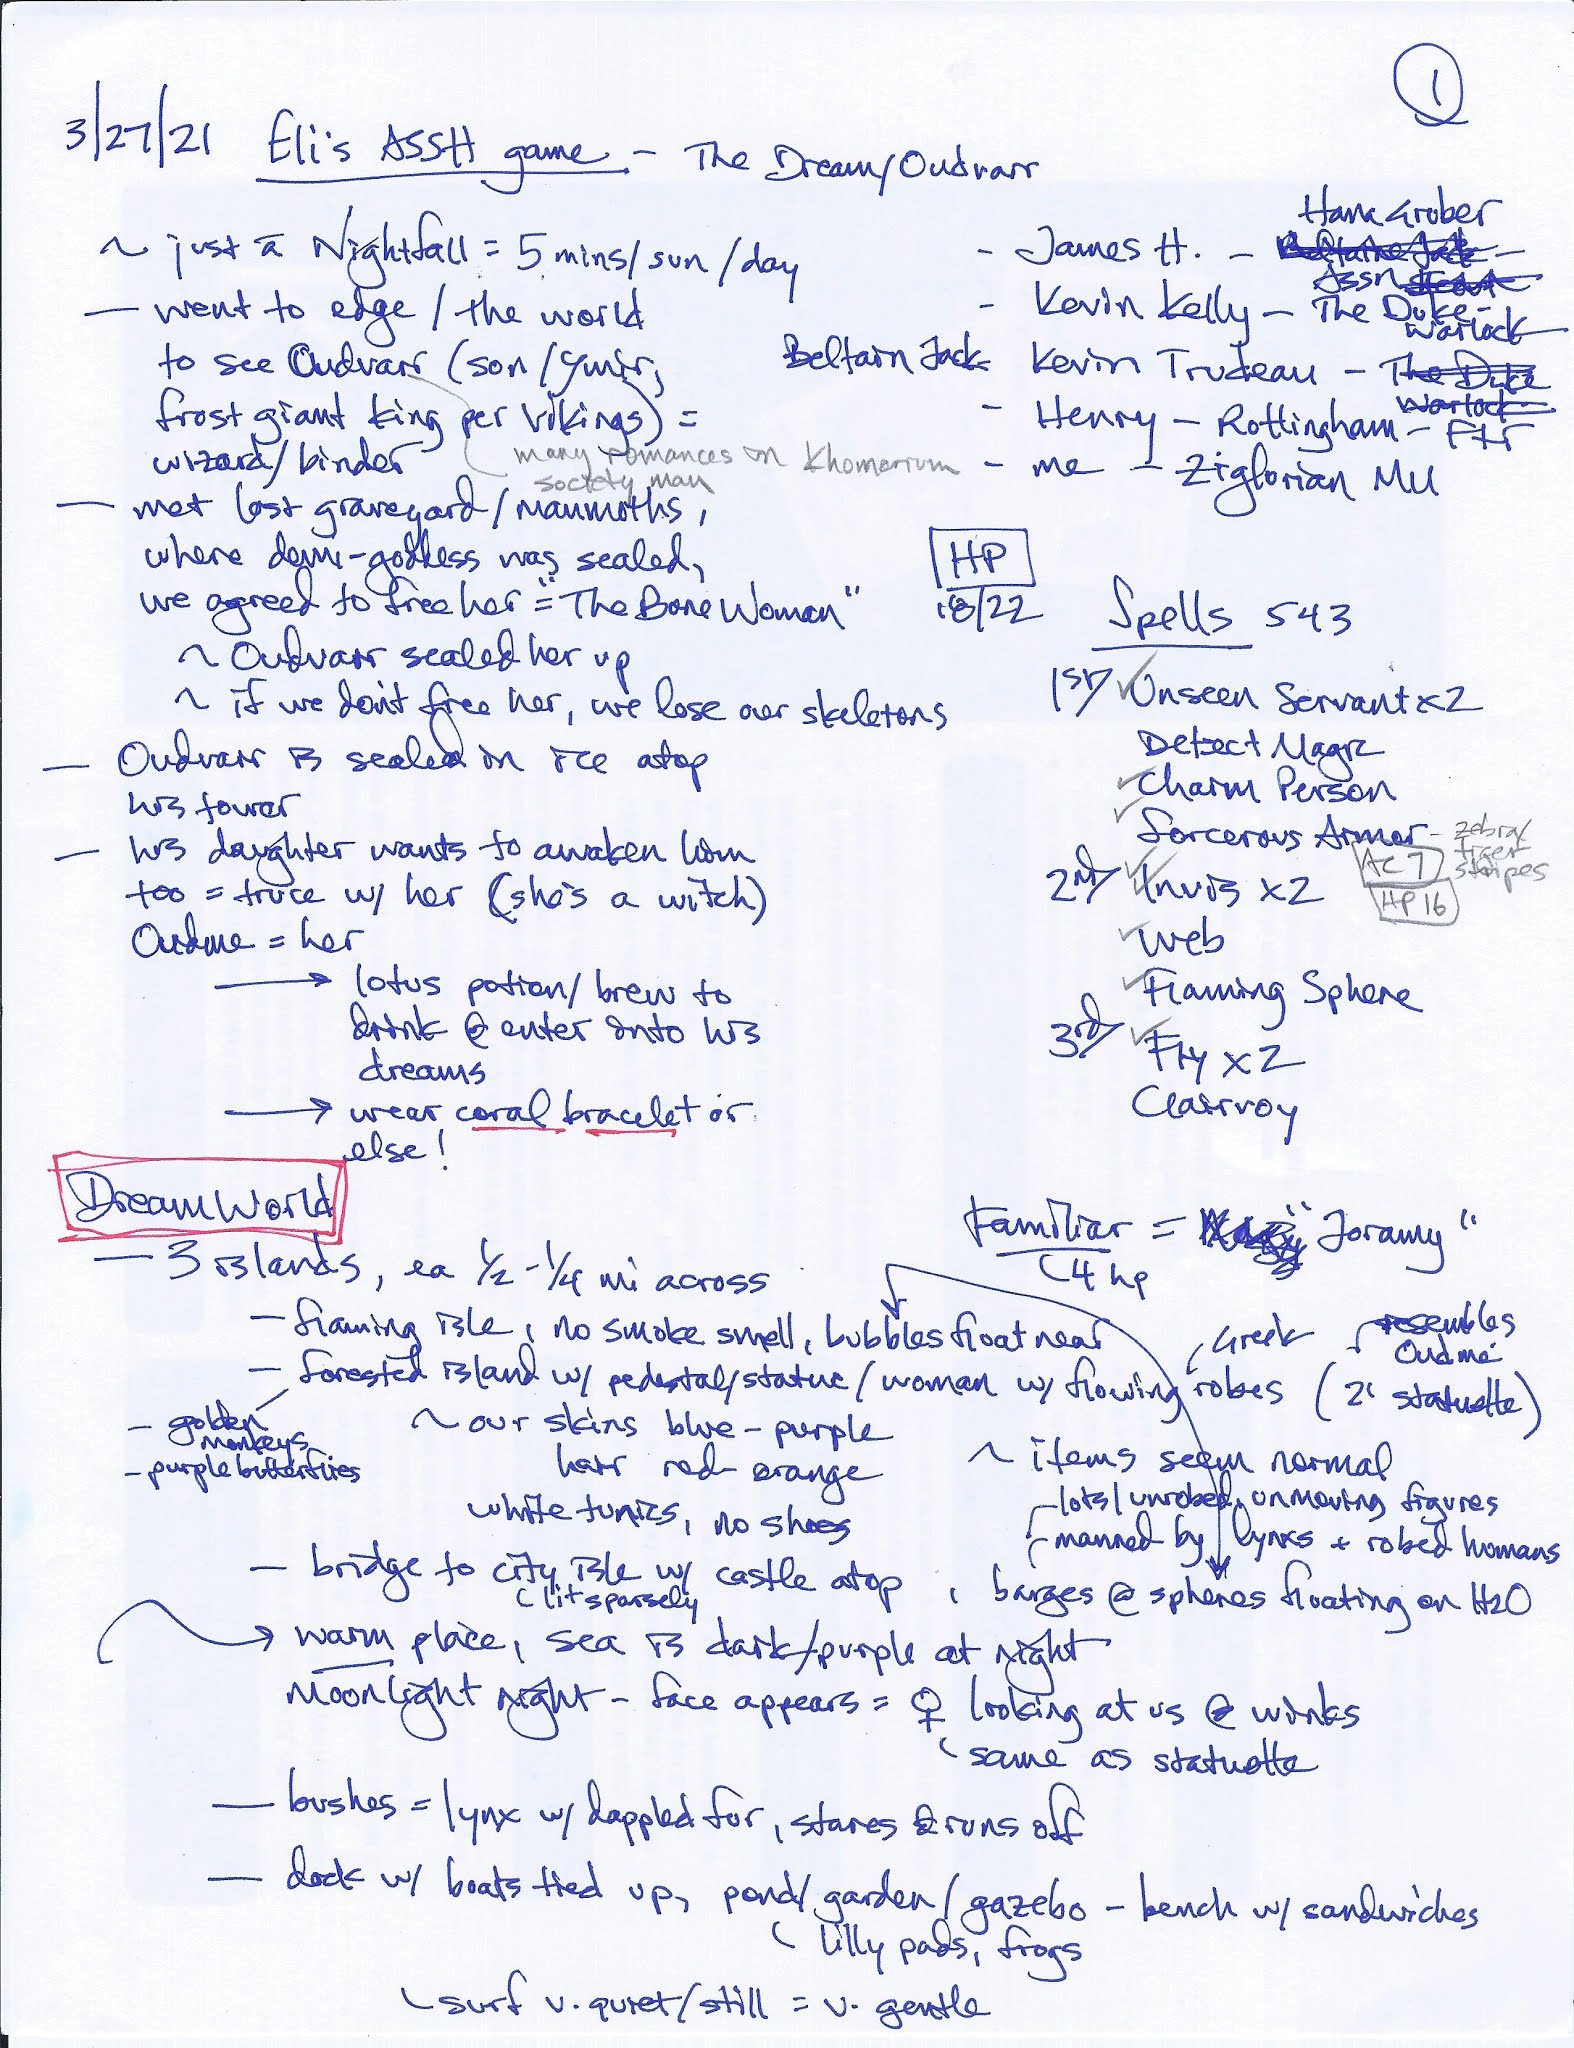 1
3/27/21 Eli's ASSH game - The Dream/Oudvarr
~ just a Nightfall = 5 mins/sun/day
— went to edge / the world
to see Oudvarr (son/Ymir,
frost giant king per Vikings) =
wizard/binder
many romances on Khomarium
society man
— met lost graveyard/mammoths,
where demi-goddess was sealed,
we agreed to free her = "The Bone Woman"
~ Oudvarr sealed her up
~ if we don't free her, we lose our skeletons
— Oudvarr is sealed in ice atop
his tower
— his daughter wants to awaken him
too = truce w/ her (she's a witch)
Oudme = her
→ lotus potion/brew to
drink @ enter into his
dreams
→ wear coral bracelet or
else!
Hans Gruber
- James H. - Beltaine Jack -
Assn
- Kevin Kelly - The Duke -
Warlock
Beltain Jack - Kevin Trudeau - The Duke
Warlock
- Henry - Rottingham - Ftr
- me - Ziglorian MU
HP
18/22
Spells 543
1st/ ✓ Unseen Servant x2
Detect Magic
✓ Charm Person
✓ Sorcerous Armor - zebra/
tiger
stripes
AC 7
HP 16
2nd/ ✓ Invis x2
✓ Web
✓ Flaming Sphere
3rd/ ✓ Fly x2
Clairvoy
Familiar = "Joramy"
4 hp
Dream World
— 3 islands, ea 1/2 - 1/4 mi across
- flaming isle, no smoke smell, bubbles float near
- forested island w/ pedestal/statue/woman w/ flowing robes (2' statuette)
Greek
resembles
Oudme
- golden
monkeys
- purple butterflies
~ our skins blue-purple
hair red-orange
white tunics, no shoes
~ items seem normal
- lots/unrobed, unmoving figures
- manned by lynxs + robed humans
- bridge to city isle w/ castle atop, barges @ spheres floating on H2O
lit sparsely
→ warm place, sea is dark/purple at night
Moonlight night - face appears = ♀ looking at us @ winks
same as statuette
— bushes = lynx w/ dappled fur, stares & runs off
— dock w/ boats tied up, pond/garden/gazebo - bench w/ sandwiches
lilly pads, frogs
surf v. quiet/still = v. gentle